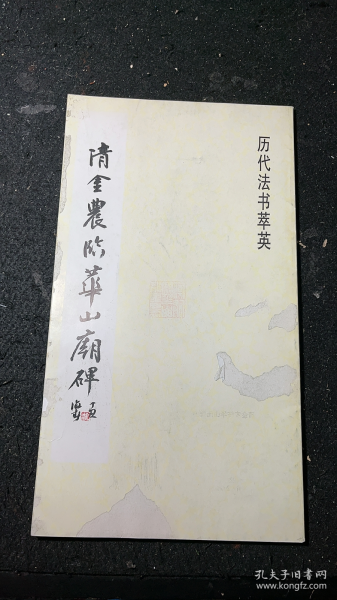 历代法书萃英
清金農临華山廟碑
孔夫子旧书网
www.kongfz.com